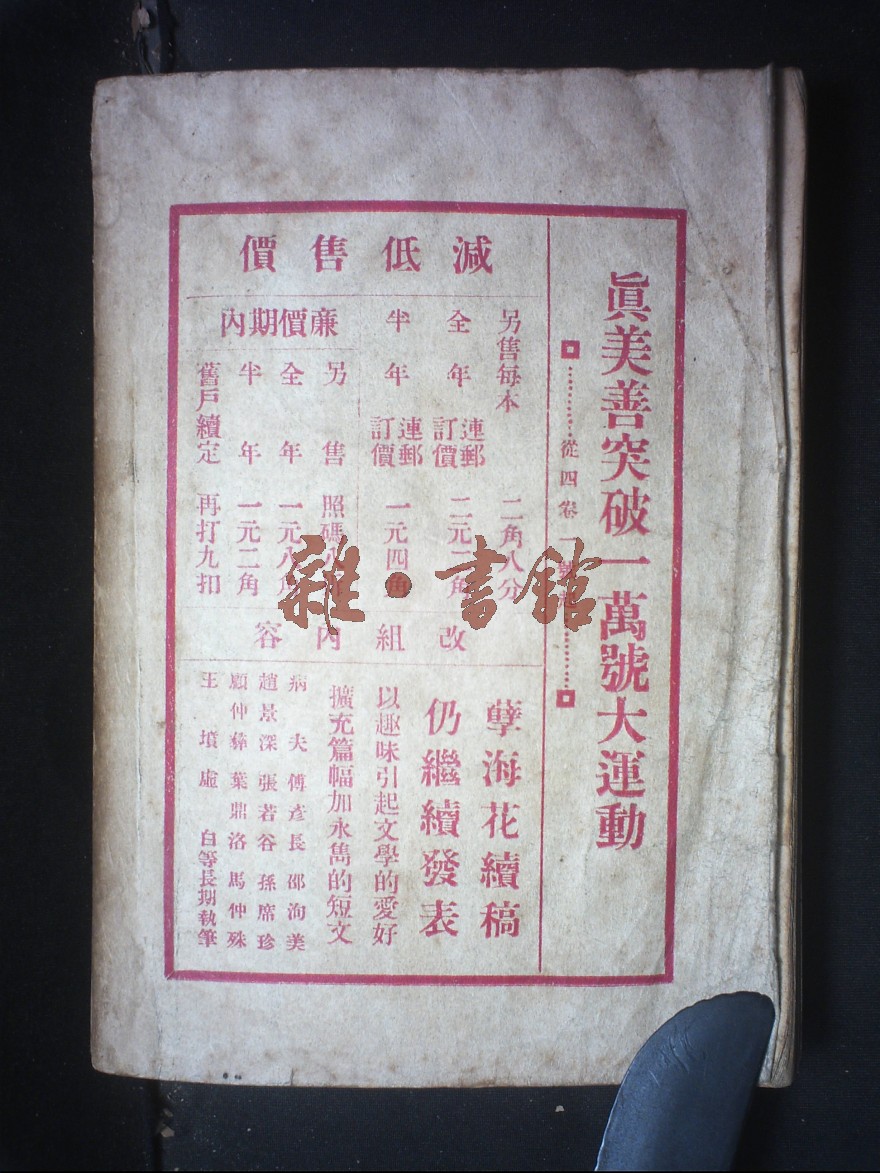 眞美善突破一萬號大運動
從四卷一號起
減低售價
另售每本 二角八分
全年 連郵訂價 二元二角
半年 連郵訂價 一元四角
亷價期內
另售 照碼八折
全年 一元八角
半年 一元二角
舊戶續定 再打九扣
改組內容
孽海花續稿
仍繼續發表
以趣味引起文學的愛好
擴充篇幅加永雋的短文
病夫 傅彥長 邵洵美
趙景深 張若谷 孫席珍
顧仲彝 葉鼎洛 馬仲殊
王墳 虛白等長期執筆
雜·書館